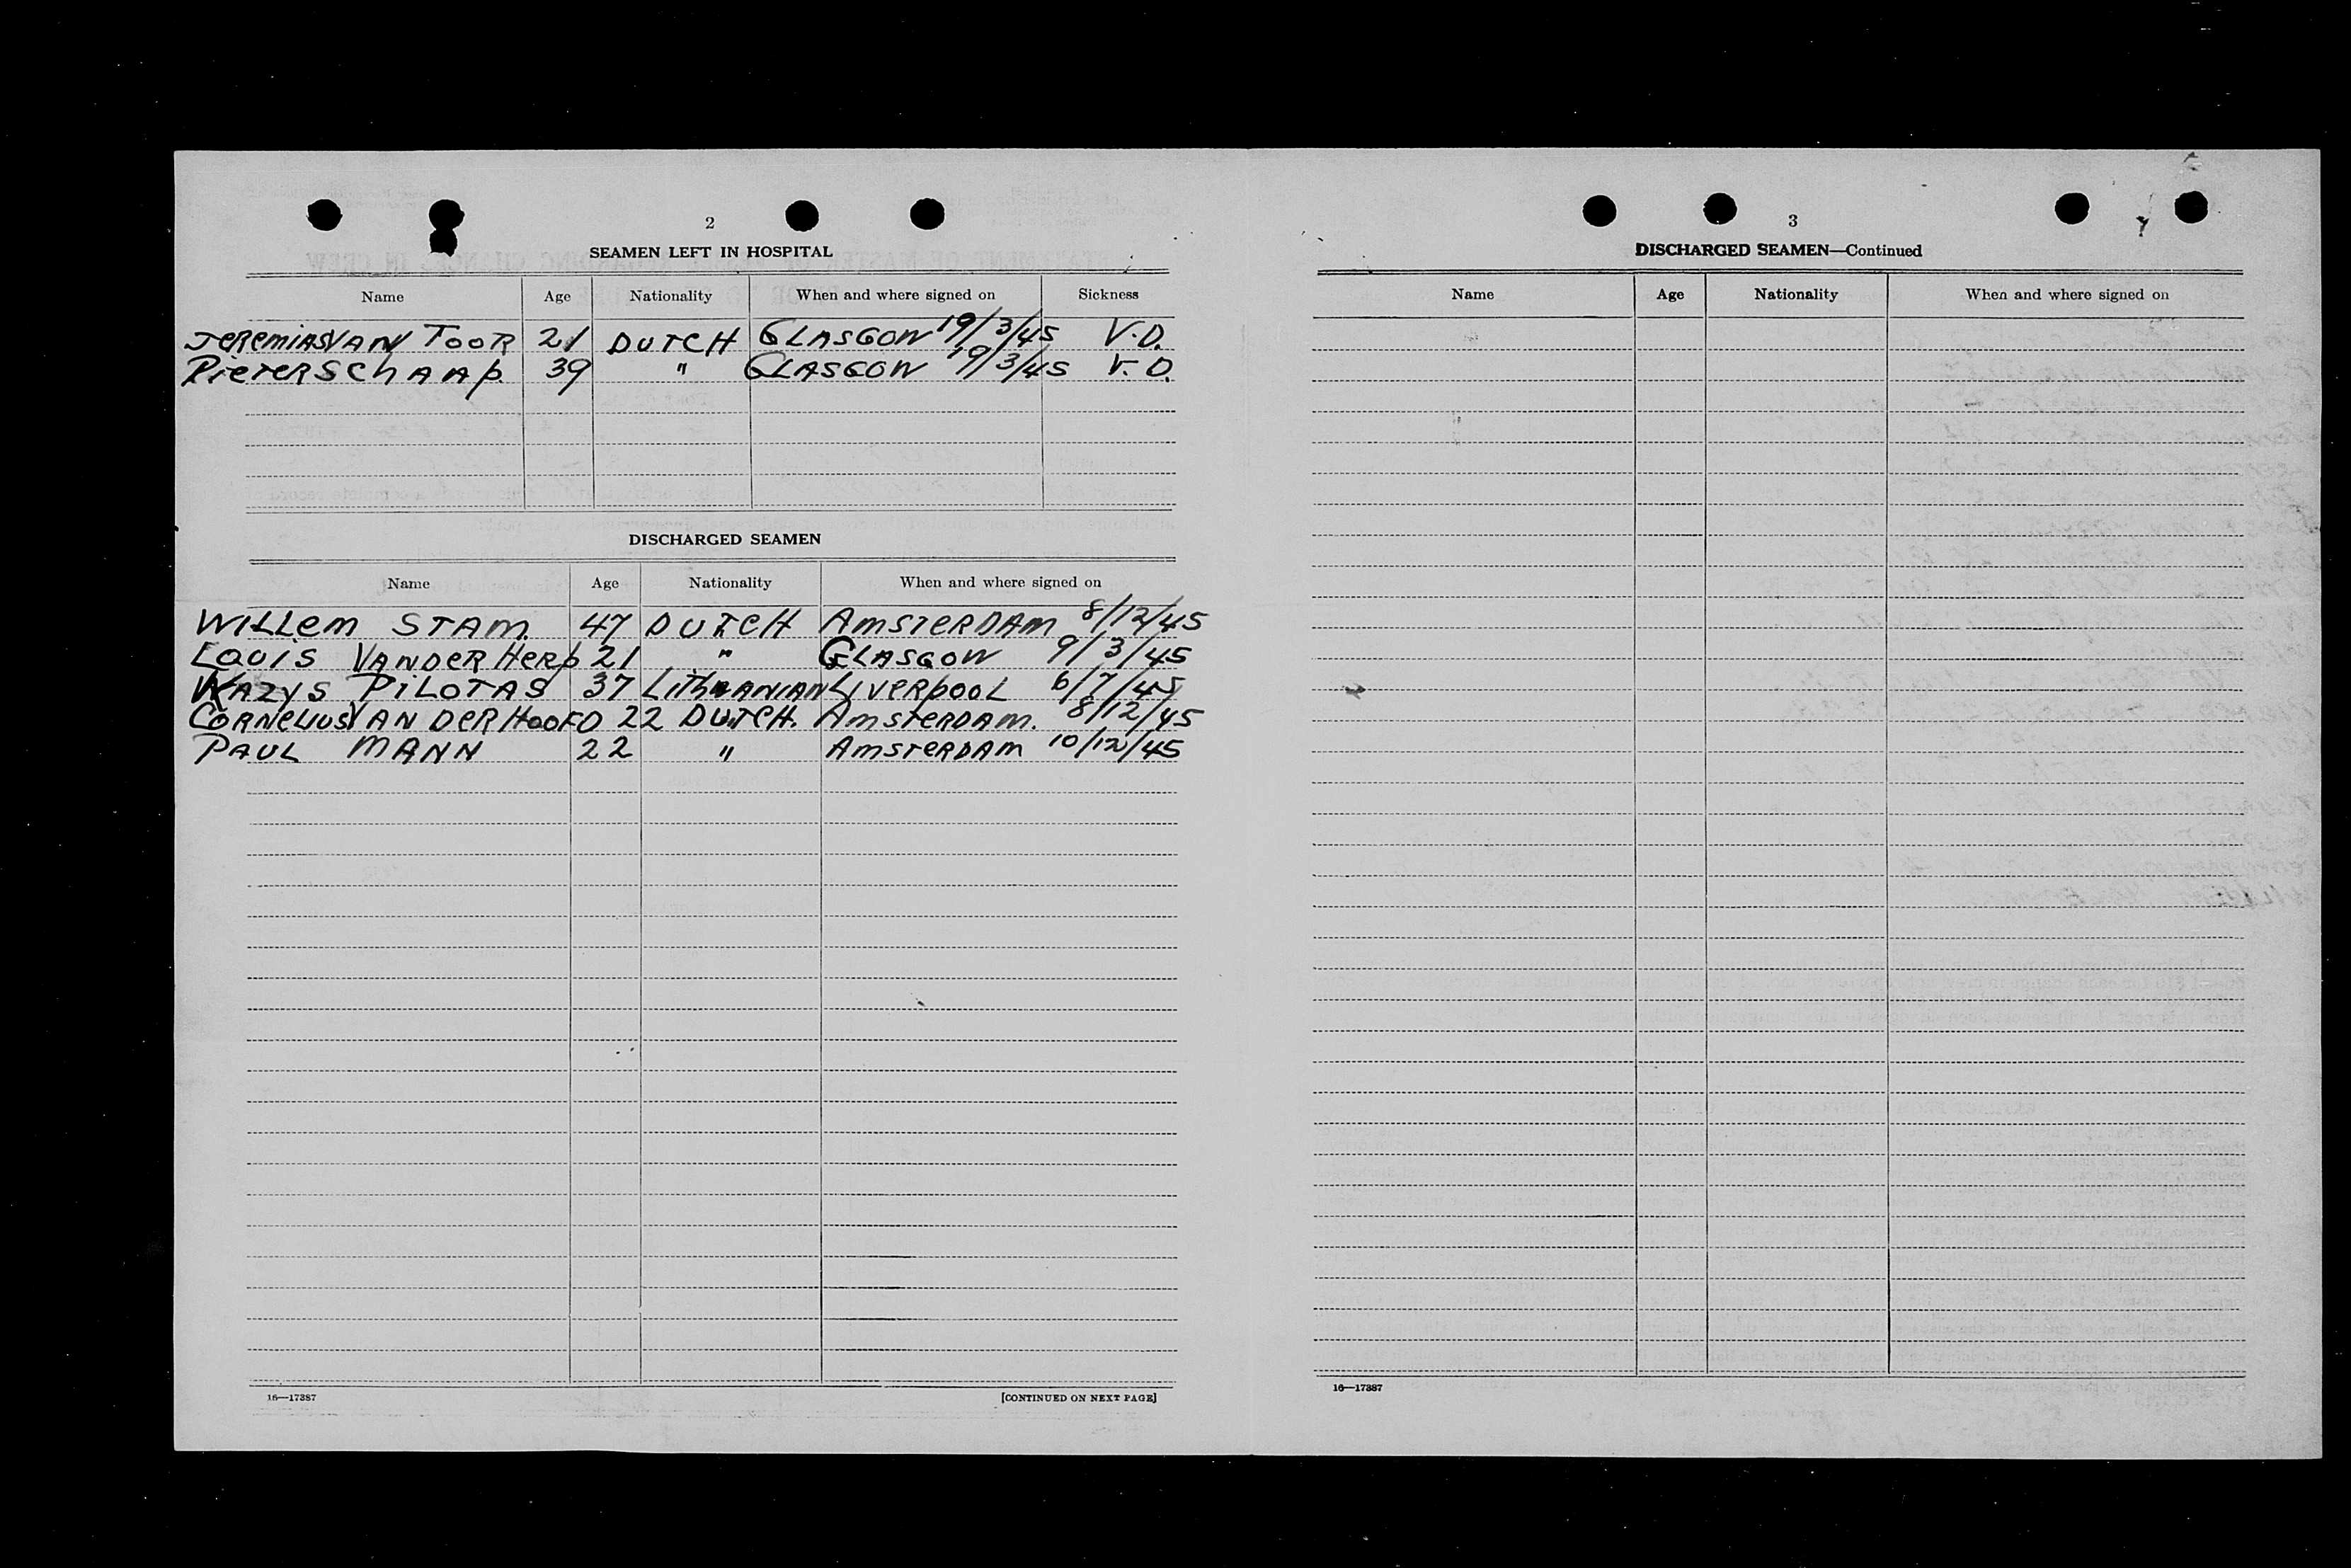 2
SEAMEN LEFT IN HOSPITAL
Name Age Nationality When and where signed on Sickness
JEREMIAS VAN TOOR 21 DUTCH GLASGOW 19/3/45 V.D.
PIETER SCHAAP. 39 " GLASGOW 19/3/45 V.D.
DISCHARGED SEAMEN
Name Age Nationality When and where signed on
WILLEM STAM. 47 DUTCH AMSTERDAM 8/12/45
LOUIS VAN DER HERP 21 " GLASGOW 9/3/45
KAZYS PILOTAS 37 LITHUANIAN LIVERPOOL 6/7/45
CORNELIUS VAN DER HOOFD 22 DUTCH. AMSTERDAM. 8/12/45
PAUL MANN 22 " AMSTERDAM 10/12/45
16—17387 [CONTINUED ON NEXT PAGE]
3
DISCHARGED SEAMEN—Continued
Name Age Nationality When and where signed on
16—17387